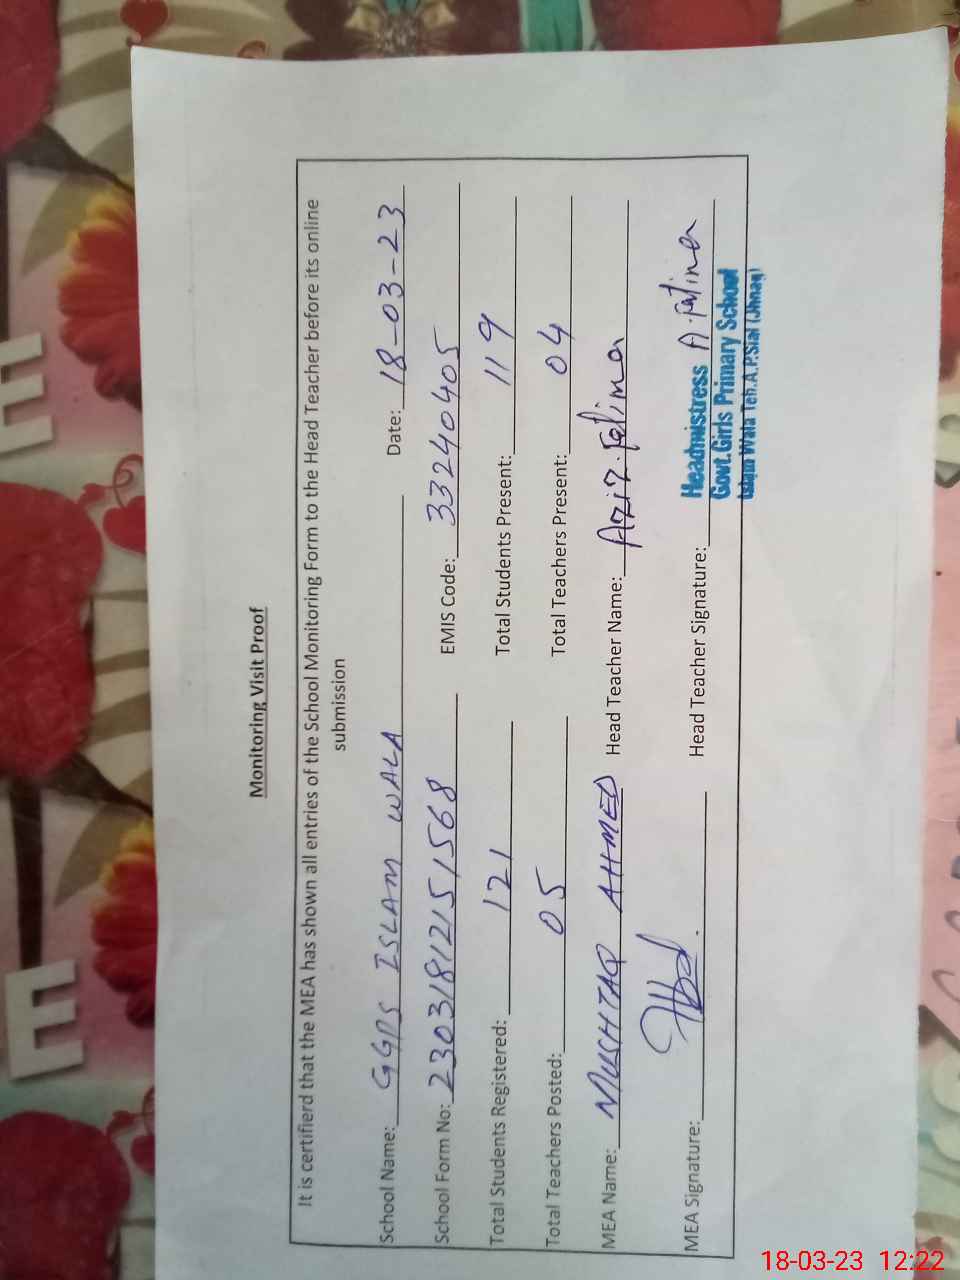 Monitoring Visit Proof
It is certifierd that the MEA has shown all entries of the School Monitoring Form to the Head Teacher before its online
submission
School Name: GGPS ISLAM WALA Date: 18-03-23
School Form No: 230318121515​68 EMIS Code: 33240405
Total Students Registered: 121 Total Students Present: 119
Total Teachers Posted: 05 Total Teachers Present: 04
MEA Name: MUSHTAQ AHMED Head Teacher Name: Aziz. Fatima
MEA Signature: Head Teacher Signature: A. Fatima
Headmistress
Govt.Girls Primary School
Islam Wala Teh.A.P.Sial (Jhang)
E
E
18-03-23 12:22